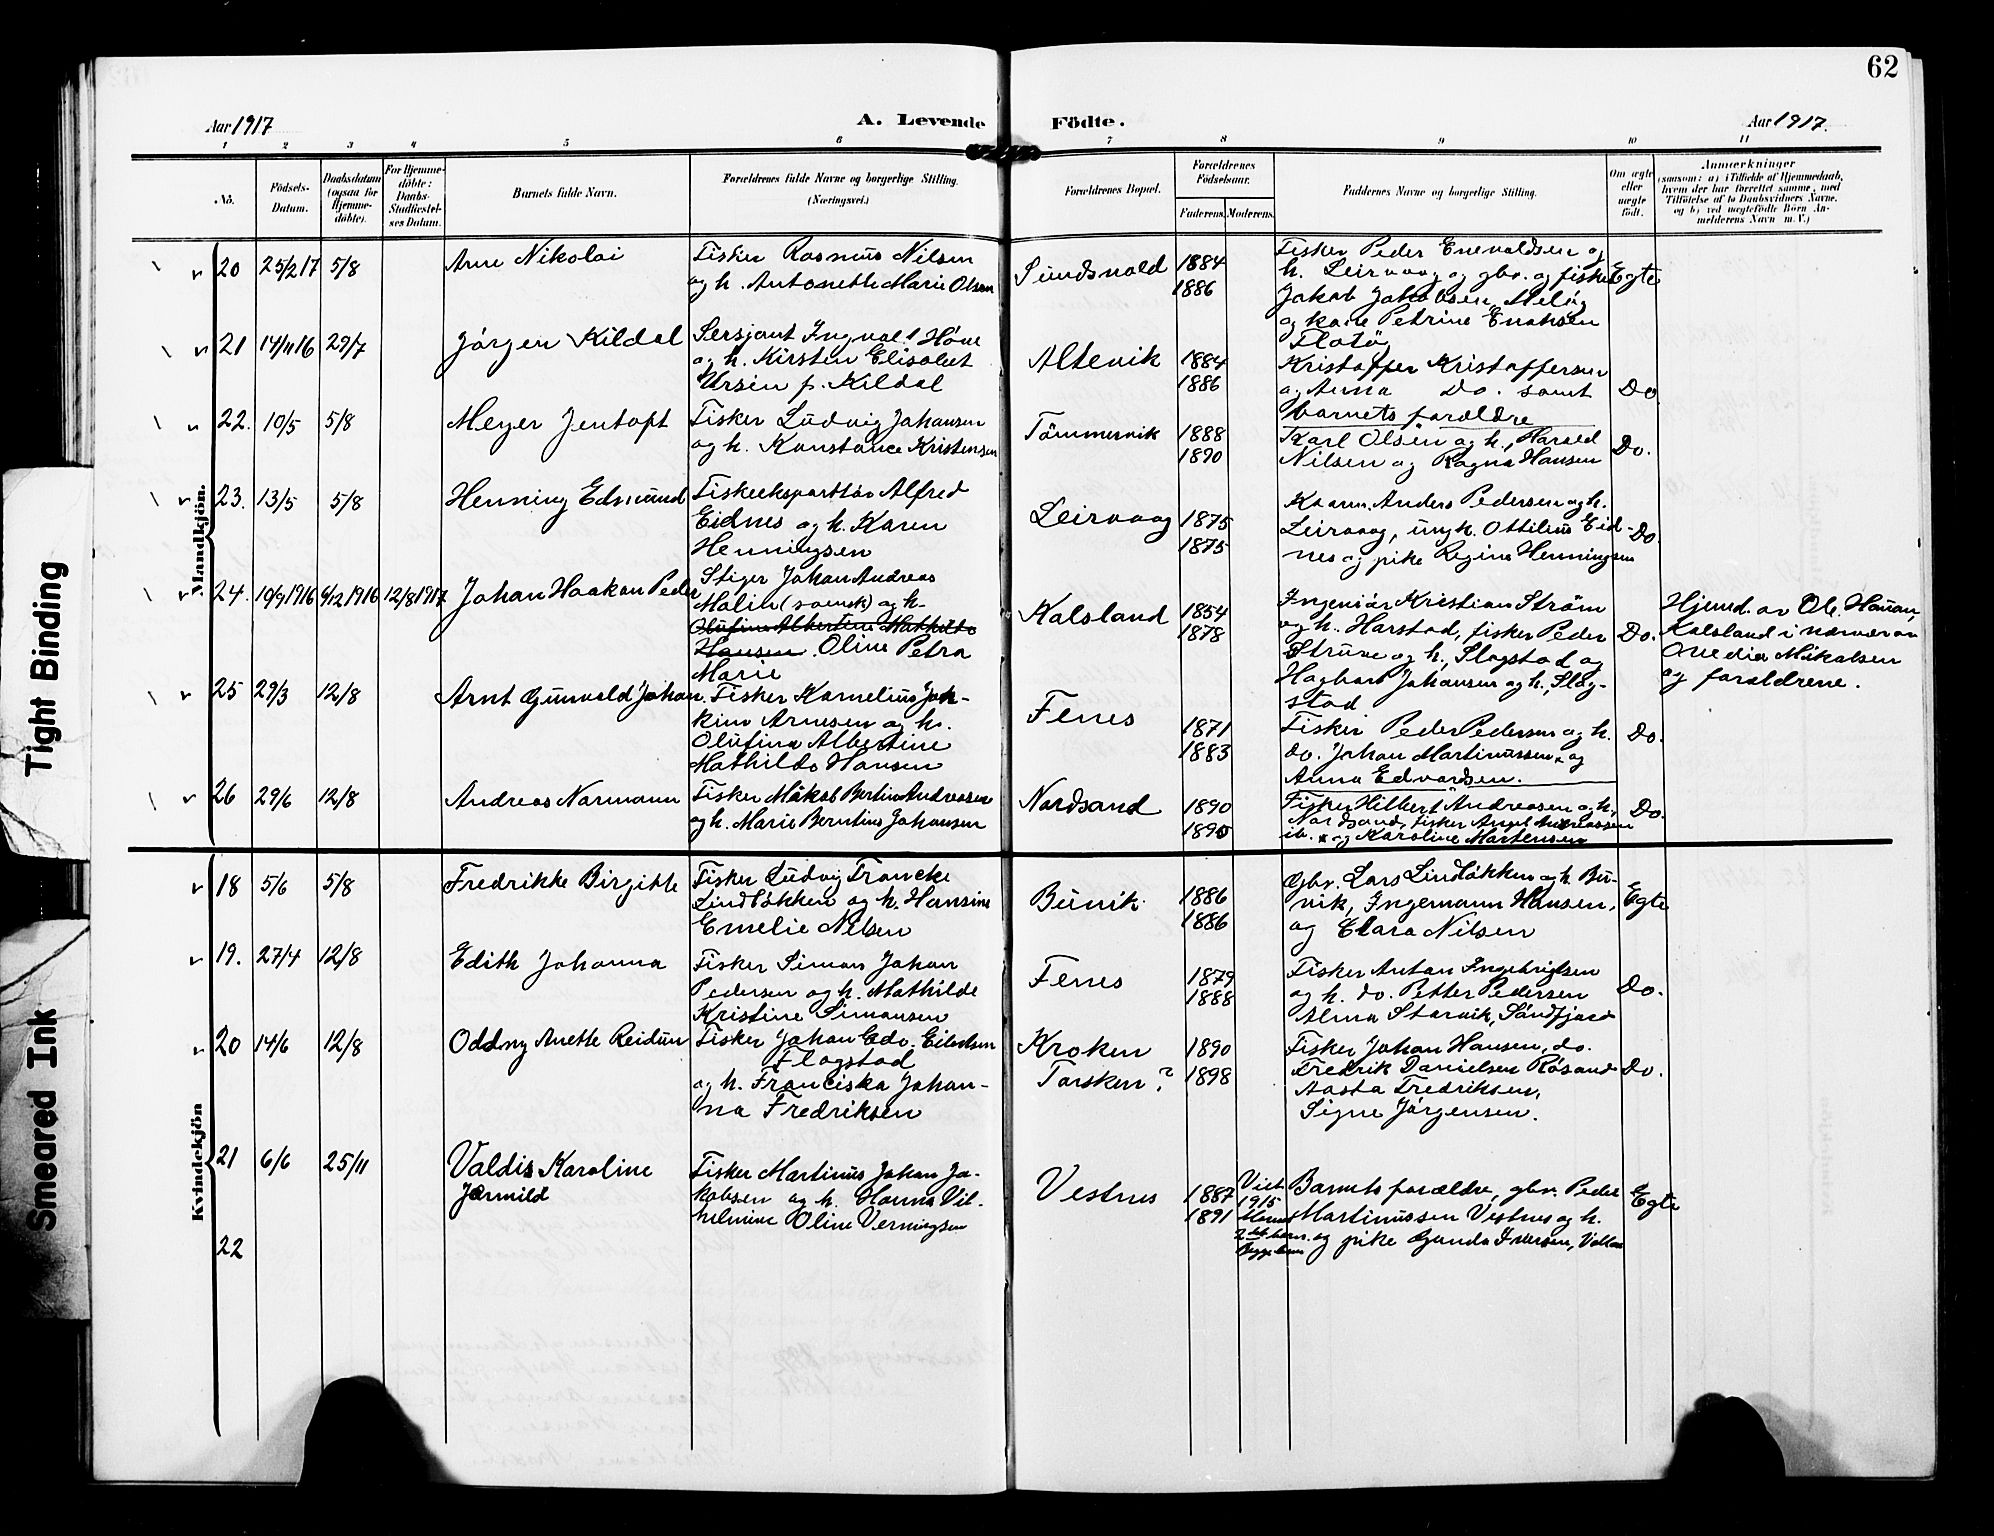 62
Aar 1917
A. Levende Födte.
Aar 1917.
1 2 3 4 5 6 7 8 9 10 11
No.
Födsels-Datum.
Daabsdatum (ogsaa for Hjemme-döbte).
For Hjemme-döbte: Daabs-Stadfæstel-ses Datum.
Barnets fulde Navn.
Forældrenes fulde Navne og borgerlige Stilling. (Næringsvei.)
Forældrenes Bopæl.
Forældrenes Födselsaar.
Faderens. Moderens.
Faddernes Navne og borgerlige Stilling.
Om ægte eller uægte födt.
Anmærkninger
(saasom: a) i Tilfælde af Hjemmedaab, hvem der har forrettet samme, med Tilföielse af to Daabsvidners Navne, og b) ved uægtefödte Börn An-melderens Navn m. V.)
Mandkjön.
20 25/2 17 5/8 Arne Nikolai
Fisker Rasmus Nilsen
og h. Antonette Marie Olsen
Sundsvold 1884
1886
Fisker Peder Enevoldsen og
h. Leirvaag og gbr. og fisker
Jakob Jakobsen, Meløy
og kone Petrine Enoksen
Flatøy
Egte
21 14/11 16 29/7 Jørgen Kildal
Sersjant Ingval Høve
og h. Kirsten Elisabet
Ursin f. Kildal
Altevik 1884
1886
Kristoffer Kristoffersen
og Anna Do. samt
barnets forældre
Do.
22. 10/5 5/8 Meyer Jentoft
Fisker Ludvig Johansen
og h. Konstance Kristensen
Tömmervik 1888
1890
Karl Olsen og h., Harald
Nilsen og Ragna Hansen
Do.
23. 13/5 5/8 Henning Edmund
Fiskeeksportör Alfred
Eidnes og h. Karen
Henningsen
Leirvaag 1875
1875
Kaarm. Anders Pedersen og h.
Leirvaag, ungk. Ottilius Eid-
nes og pike Regine Henningsen
Do.
24. 10/9 1916 9/12 1916 12/8 1917 Johan Haakon Peder
Stiger Johan Andreas
Malin (svensk) og h.
Olufine Albertine Mathilde
Hansen. Oline Petra
Marie
Kalsland 1854
1878
Ingeniør Kristian Strøm
og h. Harstad, fisker Peder
Strüve og h., Slagstad og
Hagbart Johansen og h., Slag-
stad
Do.
Hjemd. av Ole Hanan,
Kalsland i nærvær av
Ovedia Mikalsen
og forældrene.
25 29/3 12/8 Arnt Gunvald Johan.
Fisker Kornelius Joh-
kim Arnesen og h.
Olufina Albertine
Mathilde Hansen
Fenes 1871
1883
Fisker Peder Pedersen og h.
do. Johan Martinussen og
Anna Edvardsen.
Do.
26 29/6 12/8 Andreas Normann
Fisker Mikal Bertin Andreassen
og h. Marie Berntine Johansen
Nordsand 1890
1890
Fisker Hilbert Andreasen og h.
Nordsand, fisker Angel Andreassen
ib. og Karoline Martensen
Do.
Kvindekjön
18 5/6 5/8 Fredrikke Birgitte
Fisker Ludvig Francke
Lindløkken og h. Hansine
Emelie Nilsen
Bunik 1886
1886
Gbr. Lars Lindløkken og h. Bu-
nik, Ingemann Hansen,
og Clara Nilsen
Egte
19. 27/4 12/8 Edith Johanna
Fisker Simon Johan
Pedersen og h. Mathilde
Kristine Simonsen
Fenes 1879
1888
Fisker Anton Ingebrigtsen
og h. do. Petter Pedersen
Alma Starvik, Sandfjord
Do.
20 14/6 12/8 Oddny Anette Reidun
Fisker Johan Edv. Eilertsen
Flagstad
og h. Franciska Johan-
na Fredriksen
Kroken 1890
Torsken? 1898
Fisker Johan Hansen, do.
Fredrik Danielsen Røsand
Aasta Fredriksen,
Signe Jørgensen.
Do.
21 6/6 25/11 Valdis Karoline
Jørmild
Fisker Martinus Johan Ja-
kobsen og h. Hanna Vil-
helmine Oline Verningsen
Vestnes 1887
1891
Viet
1915
2det barn.
Barnets forældre, gbr. Peder
Martinussen Vestnes og h.
og pike Gunda Iversen,
Egte
22
Tight Binding
Smeared Ink